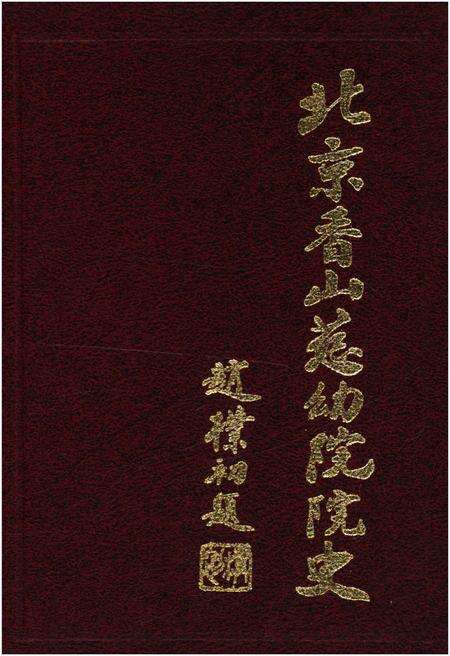 北京香山慈幼院院史
趙樸初題